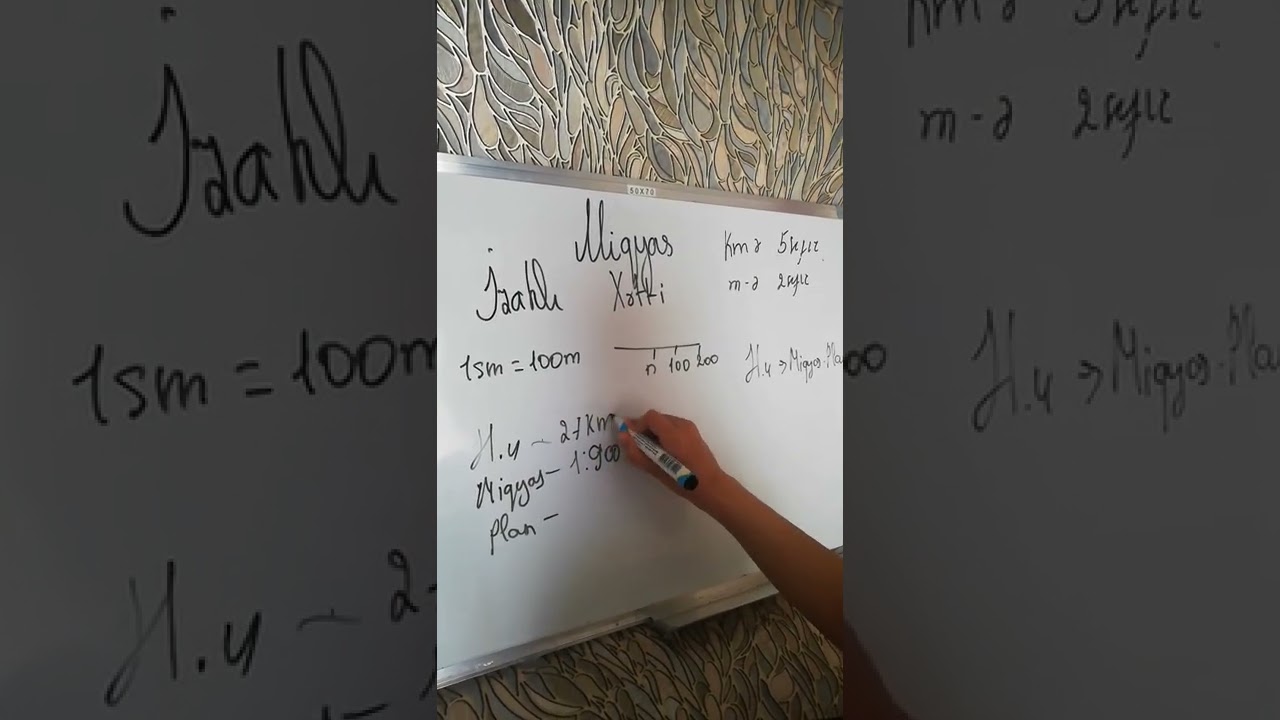 50X70
Miqyas
İzahlı Xətti
Kmə 5
m-ə 2
1sm = 100m
n 100 200
H.u => Miqyas. Pla
H.u - 27Km
Miqyas - 1:900
plan -